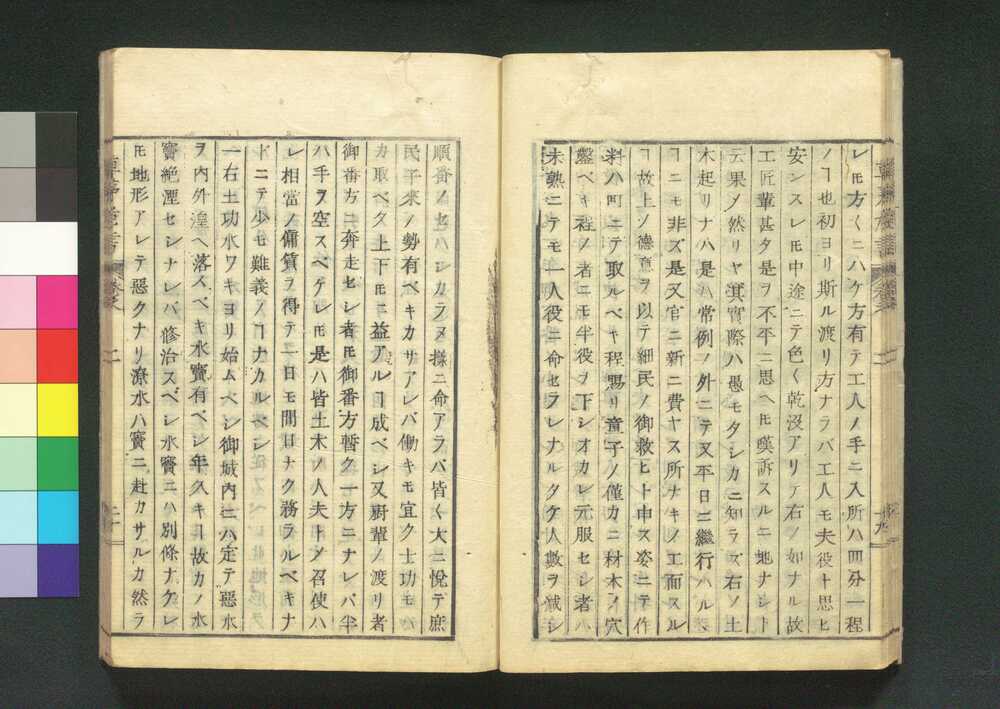 レ𪜈方〱ニハケ方有テ工人ノ手ニ入所ハ四分一程
ノヿ也初ヨリ斯ル渡リ方ナラバ工人モ夫役ト思ヒ
安ンスレ𪜈中途ニテ色〱乾沒アリテ右ノ如ナル故
工匠輩甚タ是ヲ不平ニ思ヘ𪜈嘆訴スルニ地ナシト
云果ノ然リヤ其實際ハ愚モタシカニ知ラズ右ノ土
木起リナハ是ハ常例ノ外ニテ又平日ニ繼行ハル
ヿニモ非ズ是又官ニ新ニ費ヤス所ナキノ工而スル
ヿ故上ノ德意ヲ以テ細民ノ御救ヒト申ス姿ニテ作
料ハ可ニテ取ルベキ程賜リ童子ノ僅カニ材木ノ穴
盤ベキ程ノ者ニモ半役ヲ下シオカレ元服セシ者ハ
未熟ニテモ一人役ニ命セラレナルタケ人數ヲ減シ
順番ノセハシカラヌ樣ニ命アラバ皆〱大ニ悅テ庶
民子來ノ勢有ベキカサアレバ働キモ宜ク士功モ
カ取ベク上下𪜈ニ益アルヿ成ベシ又廚輩ノ渡リ者
御番方ニ奔走セシ者𪜈御番方暫ク一方ニナレバ半
ハ手ヲ空スベケレ𪜈是ハ皆土木ノ人夫トノ召使ハ
レ相當ノ傭賃ヲ得テ一日モ間日ナク務ラルベキナ
レドニテ少モ難義ノヿナカルベシ
一右土功水ワキヨリ始ムベシ御城内ニハ定テ惡水
ヲ内外湟ヘ落スベキ水竇有ベシ年久キヿ故カノ水
竇絶湮セシナレバ修治スベシ水竇ニハ別條ナケレ
𪜈地形アレテ惡クナリ潦水ハ竇ニ赴カサルカ然ラ